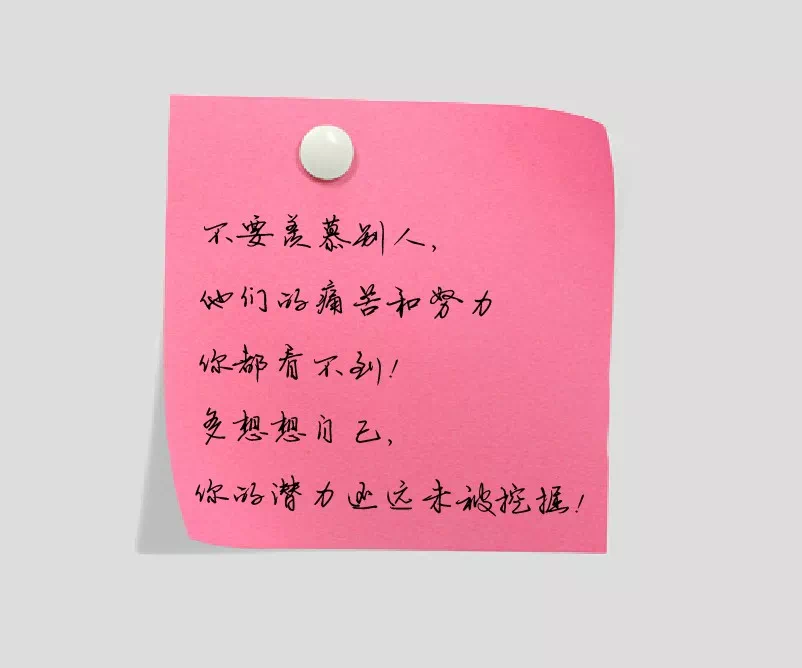 不要羡慕别人,
他们的痛苦和努力
你都看不到!
多想想自己,
你的潜力还远未被挖掘!